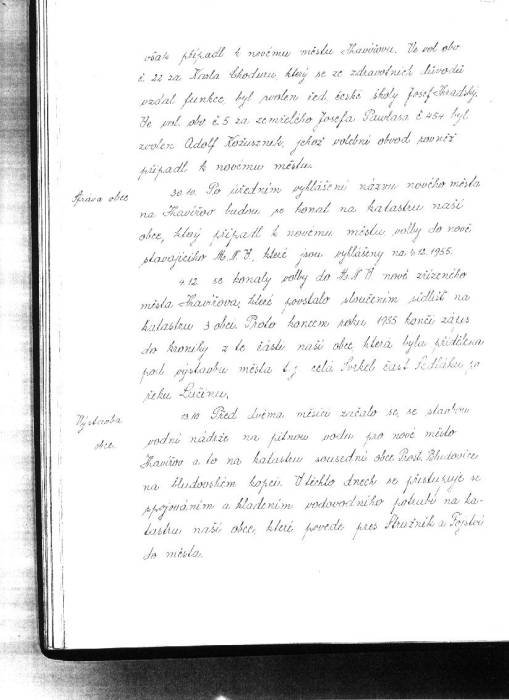 však připadl k novému městu Havířovu. Ve vol. obv.
č. 22 za Karla Choduru, který se ze zdravotních důvodů
vzdal funkce, byl zvolen řed. české školy Josef Hradský.
Ve vol. obv. č. 5 za zemřelého Josefa Pawlasa č. 454 byl
zvolen Adolf Kožusznik, jehož volební obvod rovněž
připadl k novému městu.
Správa obce
30.10. Po úředním vyhlášení názvu nového města
na Havířov budou se konat na katastru naší
obce, který připadl k novému městu volby do nově
stavajícího M.N.V., které jsou vyhlášeny na 4.12.1955.
4.12. se konaly volby do M.N.V. nově zřízeného
města Havířova, které povstalo sloučením sídlišť na
katastru 3 obcí. Proto koncem roku 1955 končí zápis
do kroniky z té části naší obce, která byla přidělena
pod výstavbu města t.j. celá část po
řeku Lučinu.
Výstavba
obce.
Před dvěma měsíci začalo se, se stavbou
vodní nádrže na pitnou vodu pro nové město
Havířov a to na katastru sousední obce Prost. Bludovice
na bludovském kopci. V těchto dnech se přistupuje se
spojováním a kladením vodovodního potrubí na ka-
tastru naší obce, které povede přes Stružník a
do města.